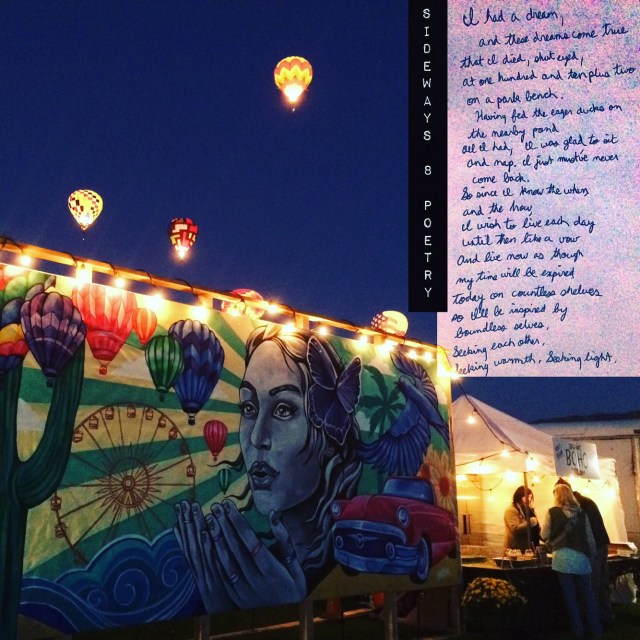 SIDEWAYS 8 POETRY
I had a dream,
and these dreams come true
that I died, shut eyed,
at one hundred and ten plus two
on a park bench.
Having fed the eager ducks on
the nearby pond
all I had, I was glad to sit
and nap, I just must've never
come back.
So since I know the when
and the how
I wish to live each day
until then like a vow
And live now as though
my time will be expired
today on countless shelves
so I'll be inspired by
boundless selves.
Seeking each other,
Seeking warmth. Seeking light.